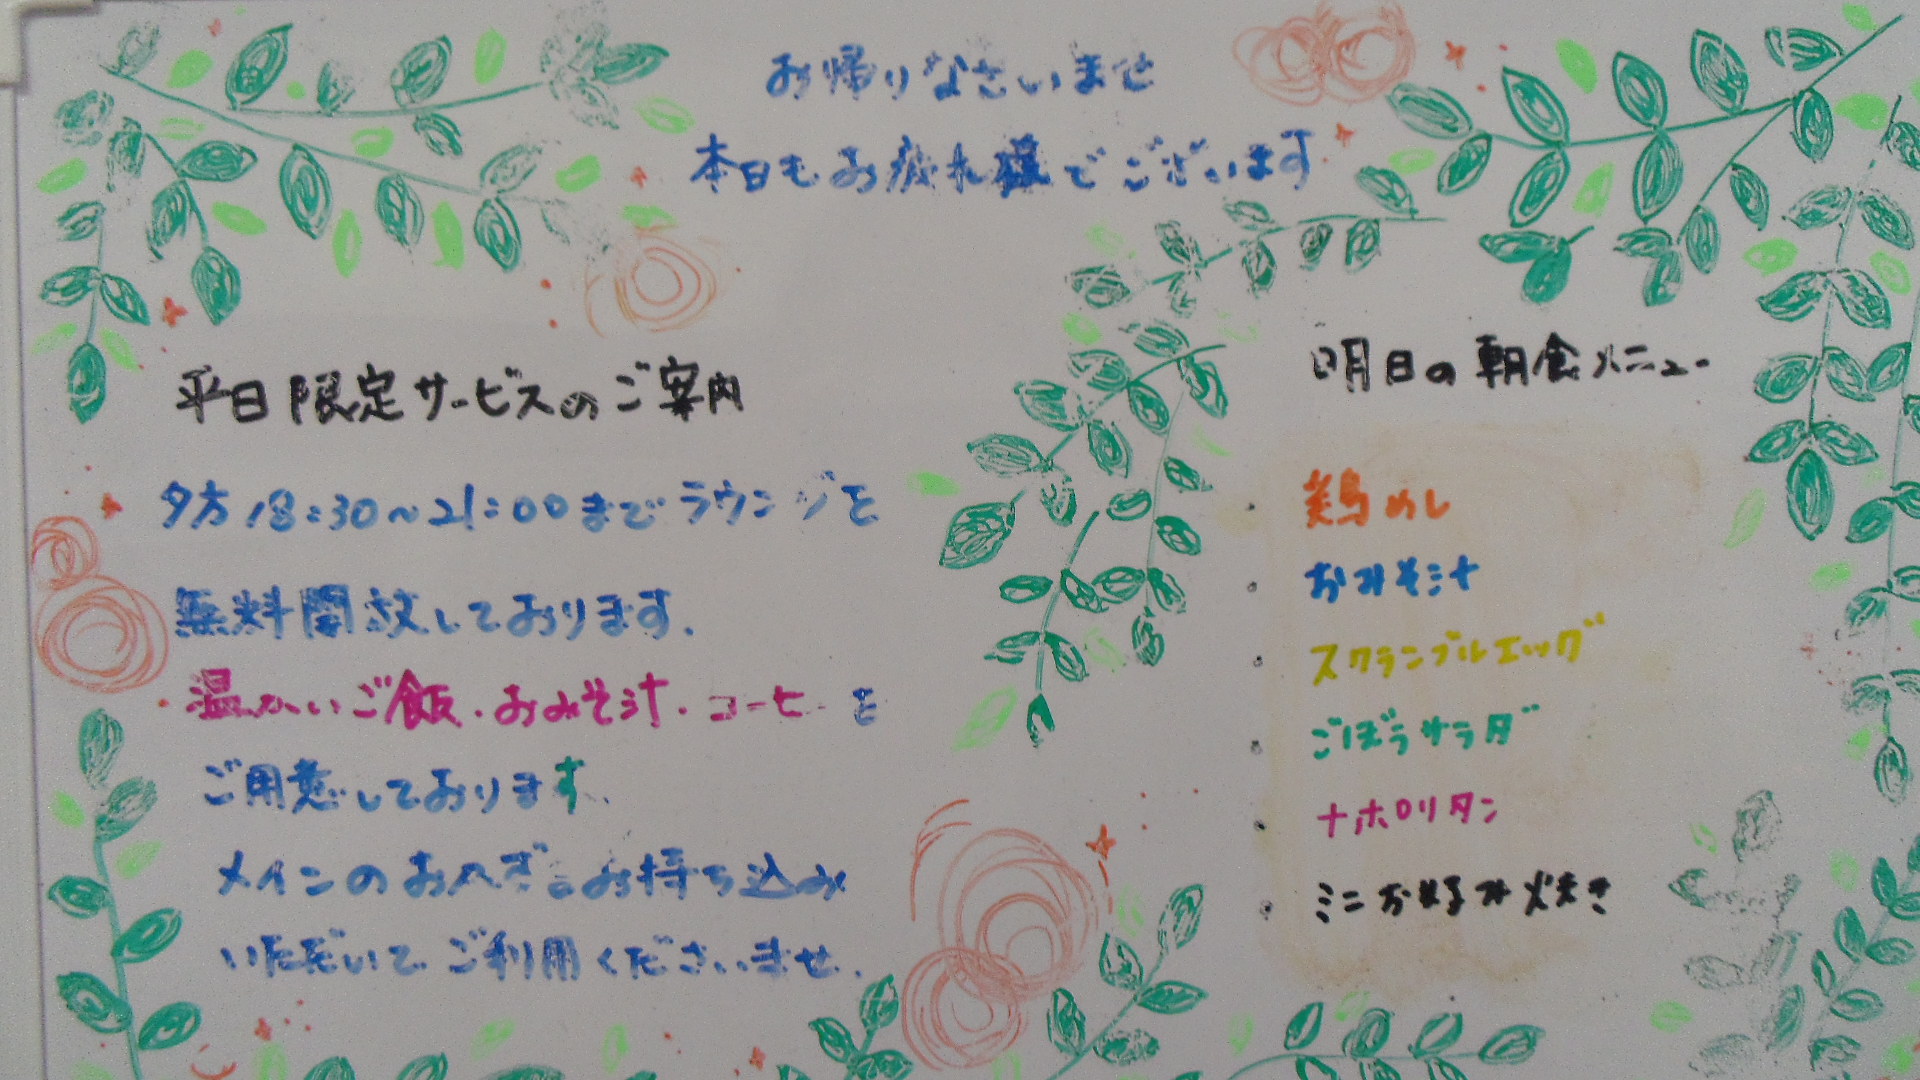 お帰りなさいませ
本日もお疲れ様でございます
平日限定サービスのご案内
夕方18:30~21:00までラウンジを
無料開放しております.
温かいご飯.おみそ汁.コーヒーを
ご用意しております.
メインのおかずはお持ち込み
いただいてご利用くださいませ.
明日の朝食メニュー
・鶏めし
・おみそ汁
・スクランブルエッグ
・ごぼうサラダ
・ナポリタン
・ミニお好み焼き